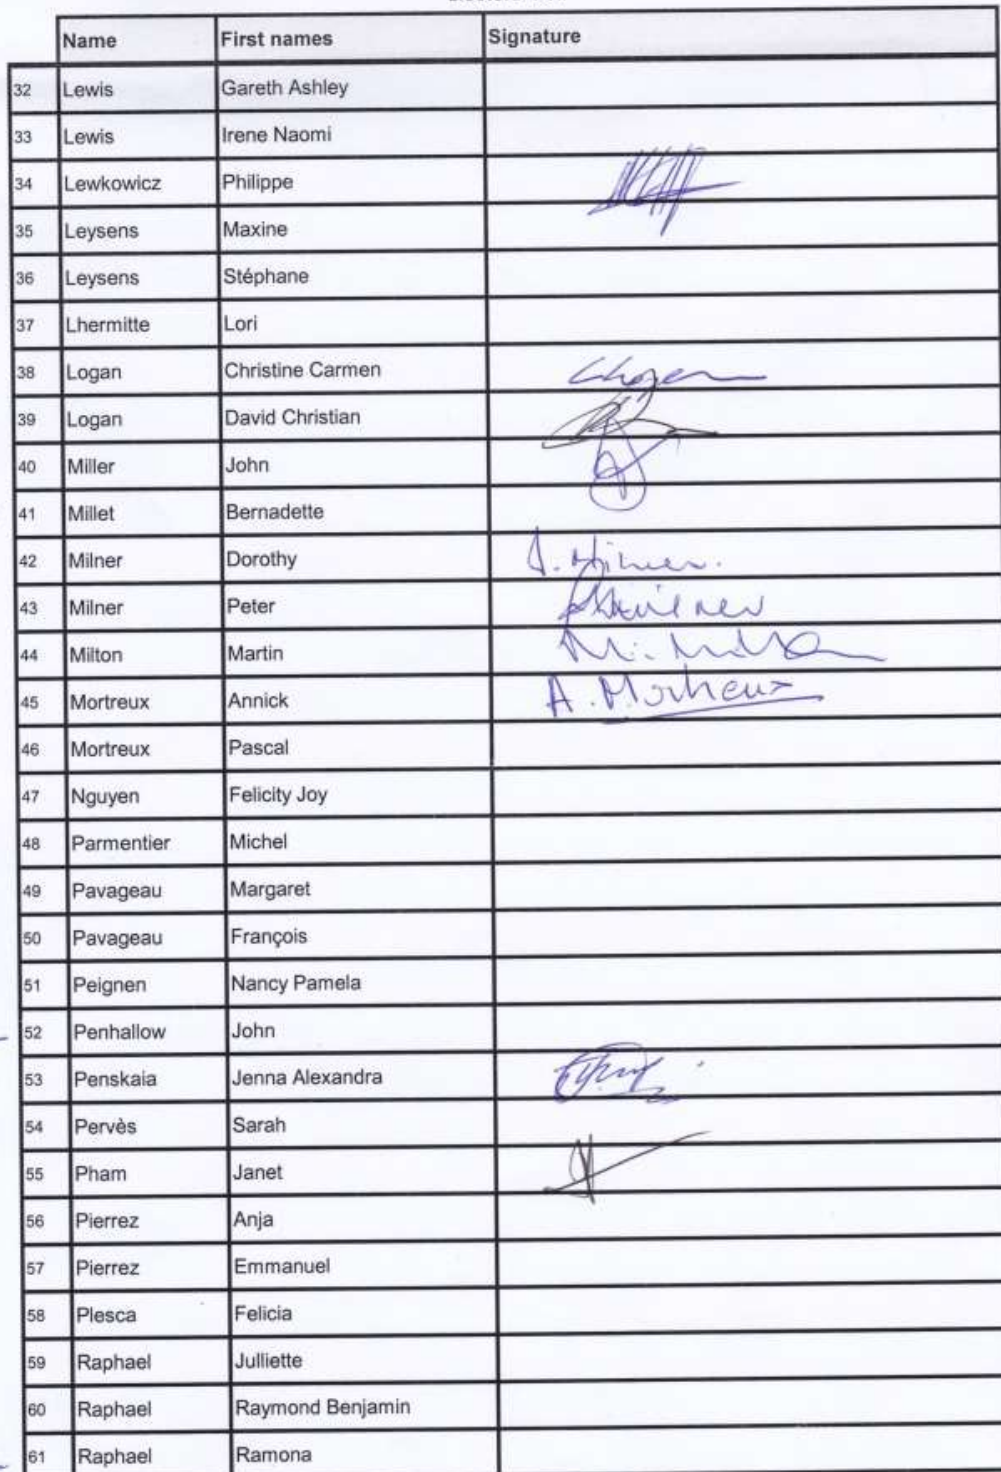 Name First names Signature
32 Lewis Gareth Ashley
33 Lewis Irene Naomi
34 Lewkowicz Philippe
35 Leysens Maxine
36 Leysens Stéphane
37 Lhermitte Lori
38 Logan Christine Carmen
39 Logan David Christian
40 Miller John
41 Millet Bernadette
42 Milner Dorothy
43 Milner Peter
44 Milton Martin
45 Mortreux Annick A. Mortreux
46 Mortreux Pascal
47 Nguyen Felicity Joy
48 Parmentier Michel
49 Pavageau Margaret
50 Pavageau François
51 Peignen Nancy Pamela
52 Penhallow John
53 Penskaia Jenna Alexandra
54 Pervès Sarah
55 Pham Janet
56 Pierrez Anja
57 Pierrez Emmanuel
58 Plesca Felicia
59 Raphael Julliette
60 Raphael Raymond Benjamin
61 Raphael Ramona